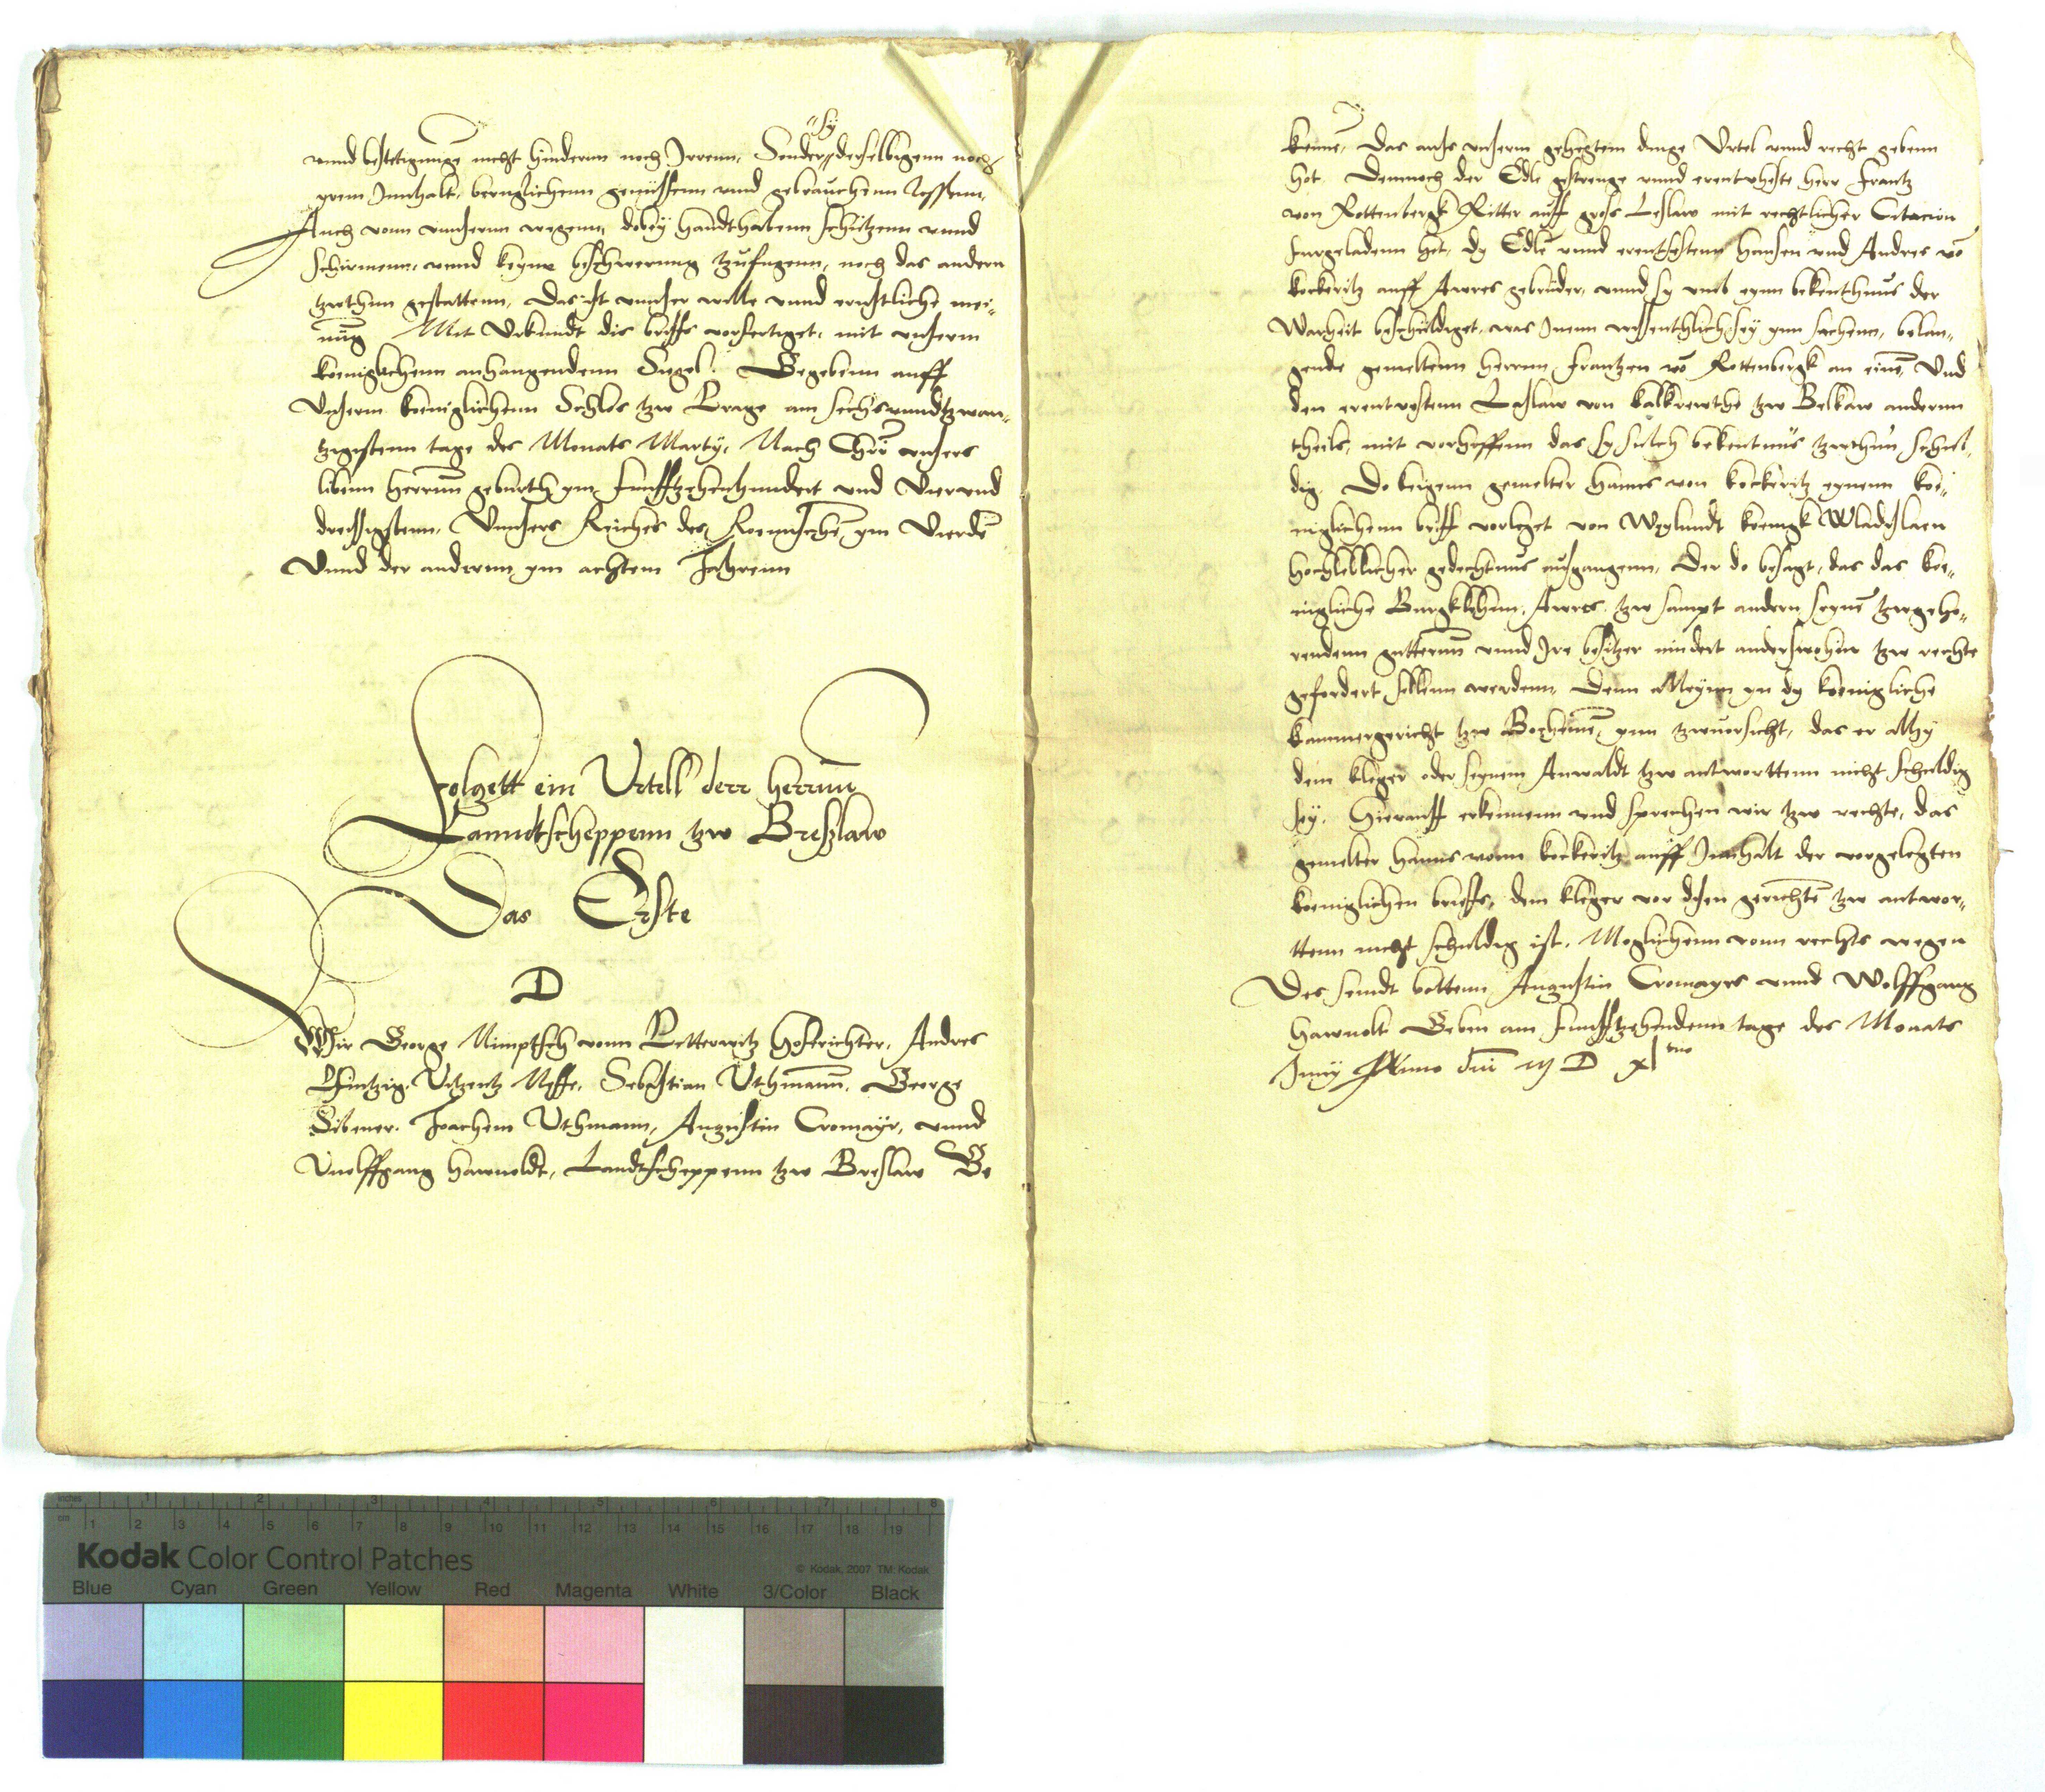 vnnd bestetigunge nicht hindernn noch Irrenn, Sonder sy derselbigenn noch
yrem Innhalt, beruglichenn genissenn vnnd gebrauchenn lossenn,
Auch vonn vnnsernn wegenn, dobey handthabenn schutzenn vnnd
schirmenn, vnnd keyne beschwerung tzufugenn, noch das andern
tzwthun gestattenn, Das ist vnnser wille vnnd ernstliche mei-
nūg Mit Vrkundt dis briffs vorfertiget, mit vnserm
koeniglichenn anhangendenn Sigel. Gegebenn auff
Vnserm koeniglichenn Schlos tzw Prage am sechsvnndtzwan-
tzigstenn tage des Monats Martÿ, Nach Chri vnsers
libenn herrnn geburth ym funfftzehenhundert vnd Viervnd
dreissigstenn, Vnnsers Reiches des Roemischē ym Vierdē
Vnnd der anderenn ym achtem Jahrenn
Folgett ein Urtell derr herrnn
Lanndtscheppenn tzw Breszlaw
Das Erste
D
Wir George Nimptsch vonn Petterwitz hoferichter, Andres
Hintzig, Vitzentz Neffe, Sebastian Vthmann, George
Sibener, Joachem Vthmann, Augustin Cromayr, vnnd
Vuolffgang hawnoldt, Landtscheppenn tzw Breslaw Be
kenne, Das aufs vnserm gehegtem dinge Vrtel vnnd recht gebenn
hot. Demnoch der Edle gestrenge vnnd erentvheste herr Frantz
von Rottenbergk Ritter auff gros Leslaw mit rechtlicher Citacion
furgeladenn het, dy Edlē vnnd erentfestenn hansen vnd Andres vō
kockeritz auff Awres gebruder, vnnd sy vmb eynn bekenthnus der
Warheit beschuldiget, was Inenn wissenthlich sey ynn sachenn, belan-
gende gemeltenn herrnn Frantzen vō Rottenbergk an einē, Vnd
den erentvestenn Leslaw von kalkrewthe tzw Belkaw andernn
theils, mit vorhoffenn das sy sulch bekentnus tzwthun schul-
dig. Do keigenn gemelter hanns von kockeritz eynenn koe-
niglichenn briff vorleget von Weylundt koenigk Wladislaen
hochloblicher gedechtnus ausgangenn, Der do besagt, das das koe-
nigliche Burgklehenn, Awres, tzw sampt andern seynē tzwgeho-
rendenn gutternn vnnd Ire besitzer nindert anderswohin tzw rechte
gefordert sollenn werdenn, Denn alleynn yn dy koenigliche
kammergericht tzw Bohemē, ynn tzwuorsicht, das er alhy
dem kleger oder seynem Anwaldt tzw antworttenn nicht schuldig
sey. Hierauff erkennenn vnd sprechen wir tzw rechte, das
gemelter hanns vonn kockeritz auff Innhalt der vorgelegten
koeniglichen brieffs, dem kleger vor disen gerichtē tzw antwor-
ttenn nicht schuldig ist. Moglichenn vonn rechts wegen
Des seindt bottenn Augustin Cromayer vnnd Wolffgang
hawnolt Geben am funfftzehendenn tage des Monats
Junij Anno dm̄ M D xl mo